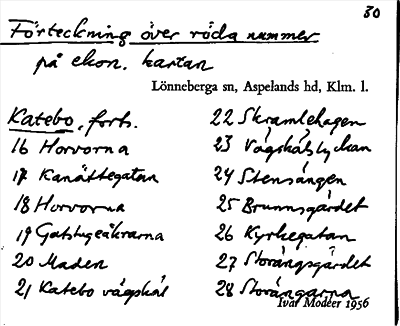 30
Förteckning över röda nummer
på ekon. kartan
Lönneberga sn, Aspelands hd, Klm. l.
Katebo, forts.
16 Horvorna
17 Kanättegatan
18 Horvorna
19 Gatstugeåkrarna
20 Maden
21 Katebo vägskäl
22 Skramlehagen
23 Vägskälslyckan
24 Stensängen
25 Brunnsgärdet
26 Kyrkegatan
27 Storängsgärdet
28 Storängarna
Ivar Modéer 1956